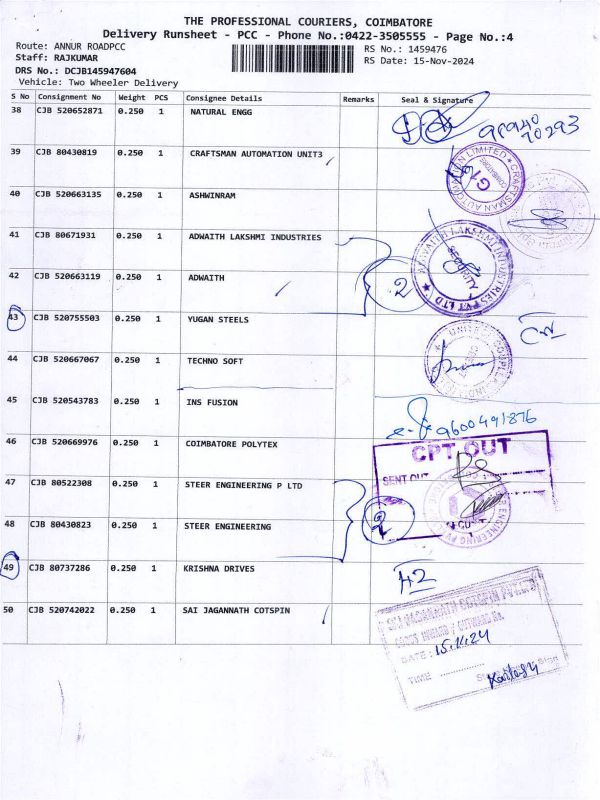 THE PROFESSIONAL COURIERS, COIMBATORE
Delivery Runsheet - PCC - Phone No.:0422-3505555 - Page No.:4
Route: ANNUR ROADPCC
RS No.: 1459476
Staff: RAJKUMAR
RS Date: 15-Nov-2024
DRS No.: DCJB145947604
Vehicle: Two Wheeler Delivery
S No Consignment No Weight PCS Consignee Details Remarks Seal & Signature
38 CJB 520652871 0.250 1 NATURAL ENGG
39 CJB 80430819 0.250 1 CRAFTSMAN AUTOMATION UNIT3
40 CJB 520663135 0.250 1 ASHWINRAM
41 CJB 80671931 0.250 1 ADWAITH LAKSHMI INDUSTRIES
42 CJB 520663119 0.250 1 ADWAITH 2
43 CJB 520755503 0.250 1 YUGAN STEELS
44 CJB 520667067 0.250 1 TECHNO SOFT
45 CJB 520543783 0.250 1 INS FUSION 9600491876
46 CJB 520669976 0.250 1 COIMBATORE POLYTEX
CPT OUT
SENT OUT
47 CJB 80522308 0.250 1 STEER ENGINEERING P LTD
48 CJB 80430823 0.250 1 STEER ENGINEERING 2
49 CJB 80737286 0.250 1 KRISHNA DRIVES
50 CJB 520742022 0.250 1 SAI JAGANNATH COTSPIN
SAI JAGANNATH COTSPIN PVT LTD
DATE : 15.11.24
TIME